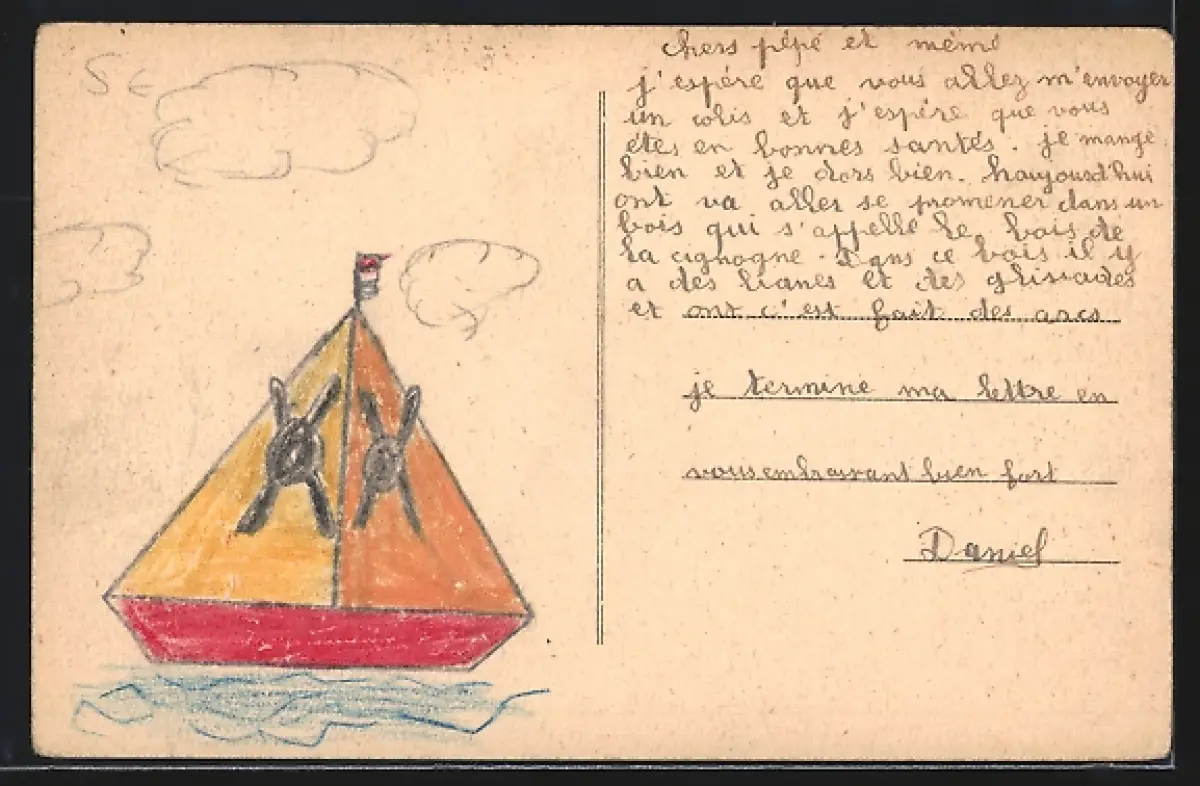 S E
chers pépé et mémé
j'espére que vous allez m'envoyer
un colis et j'espére que vous
étes en bonnes santés. je mange
bien et je dors bien. haujourd'hui
ont va aller se promener dans un
bois qui s'appelle le bois de
la cignogne. Dans ce bois il y
a des lianes et des glissades
et ont c'est fait des arcs
je termine ma lettre en
vous embrassant bien fort
Daniel